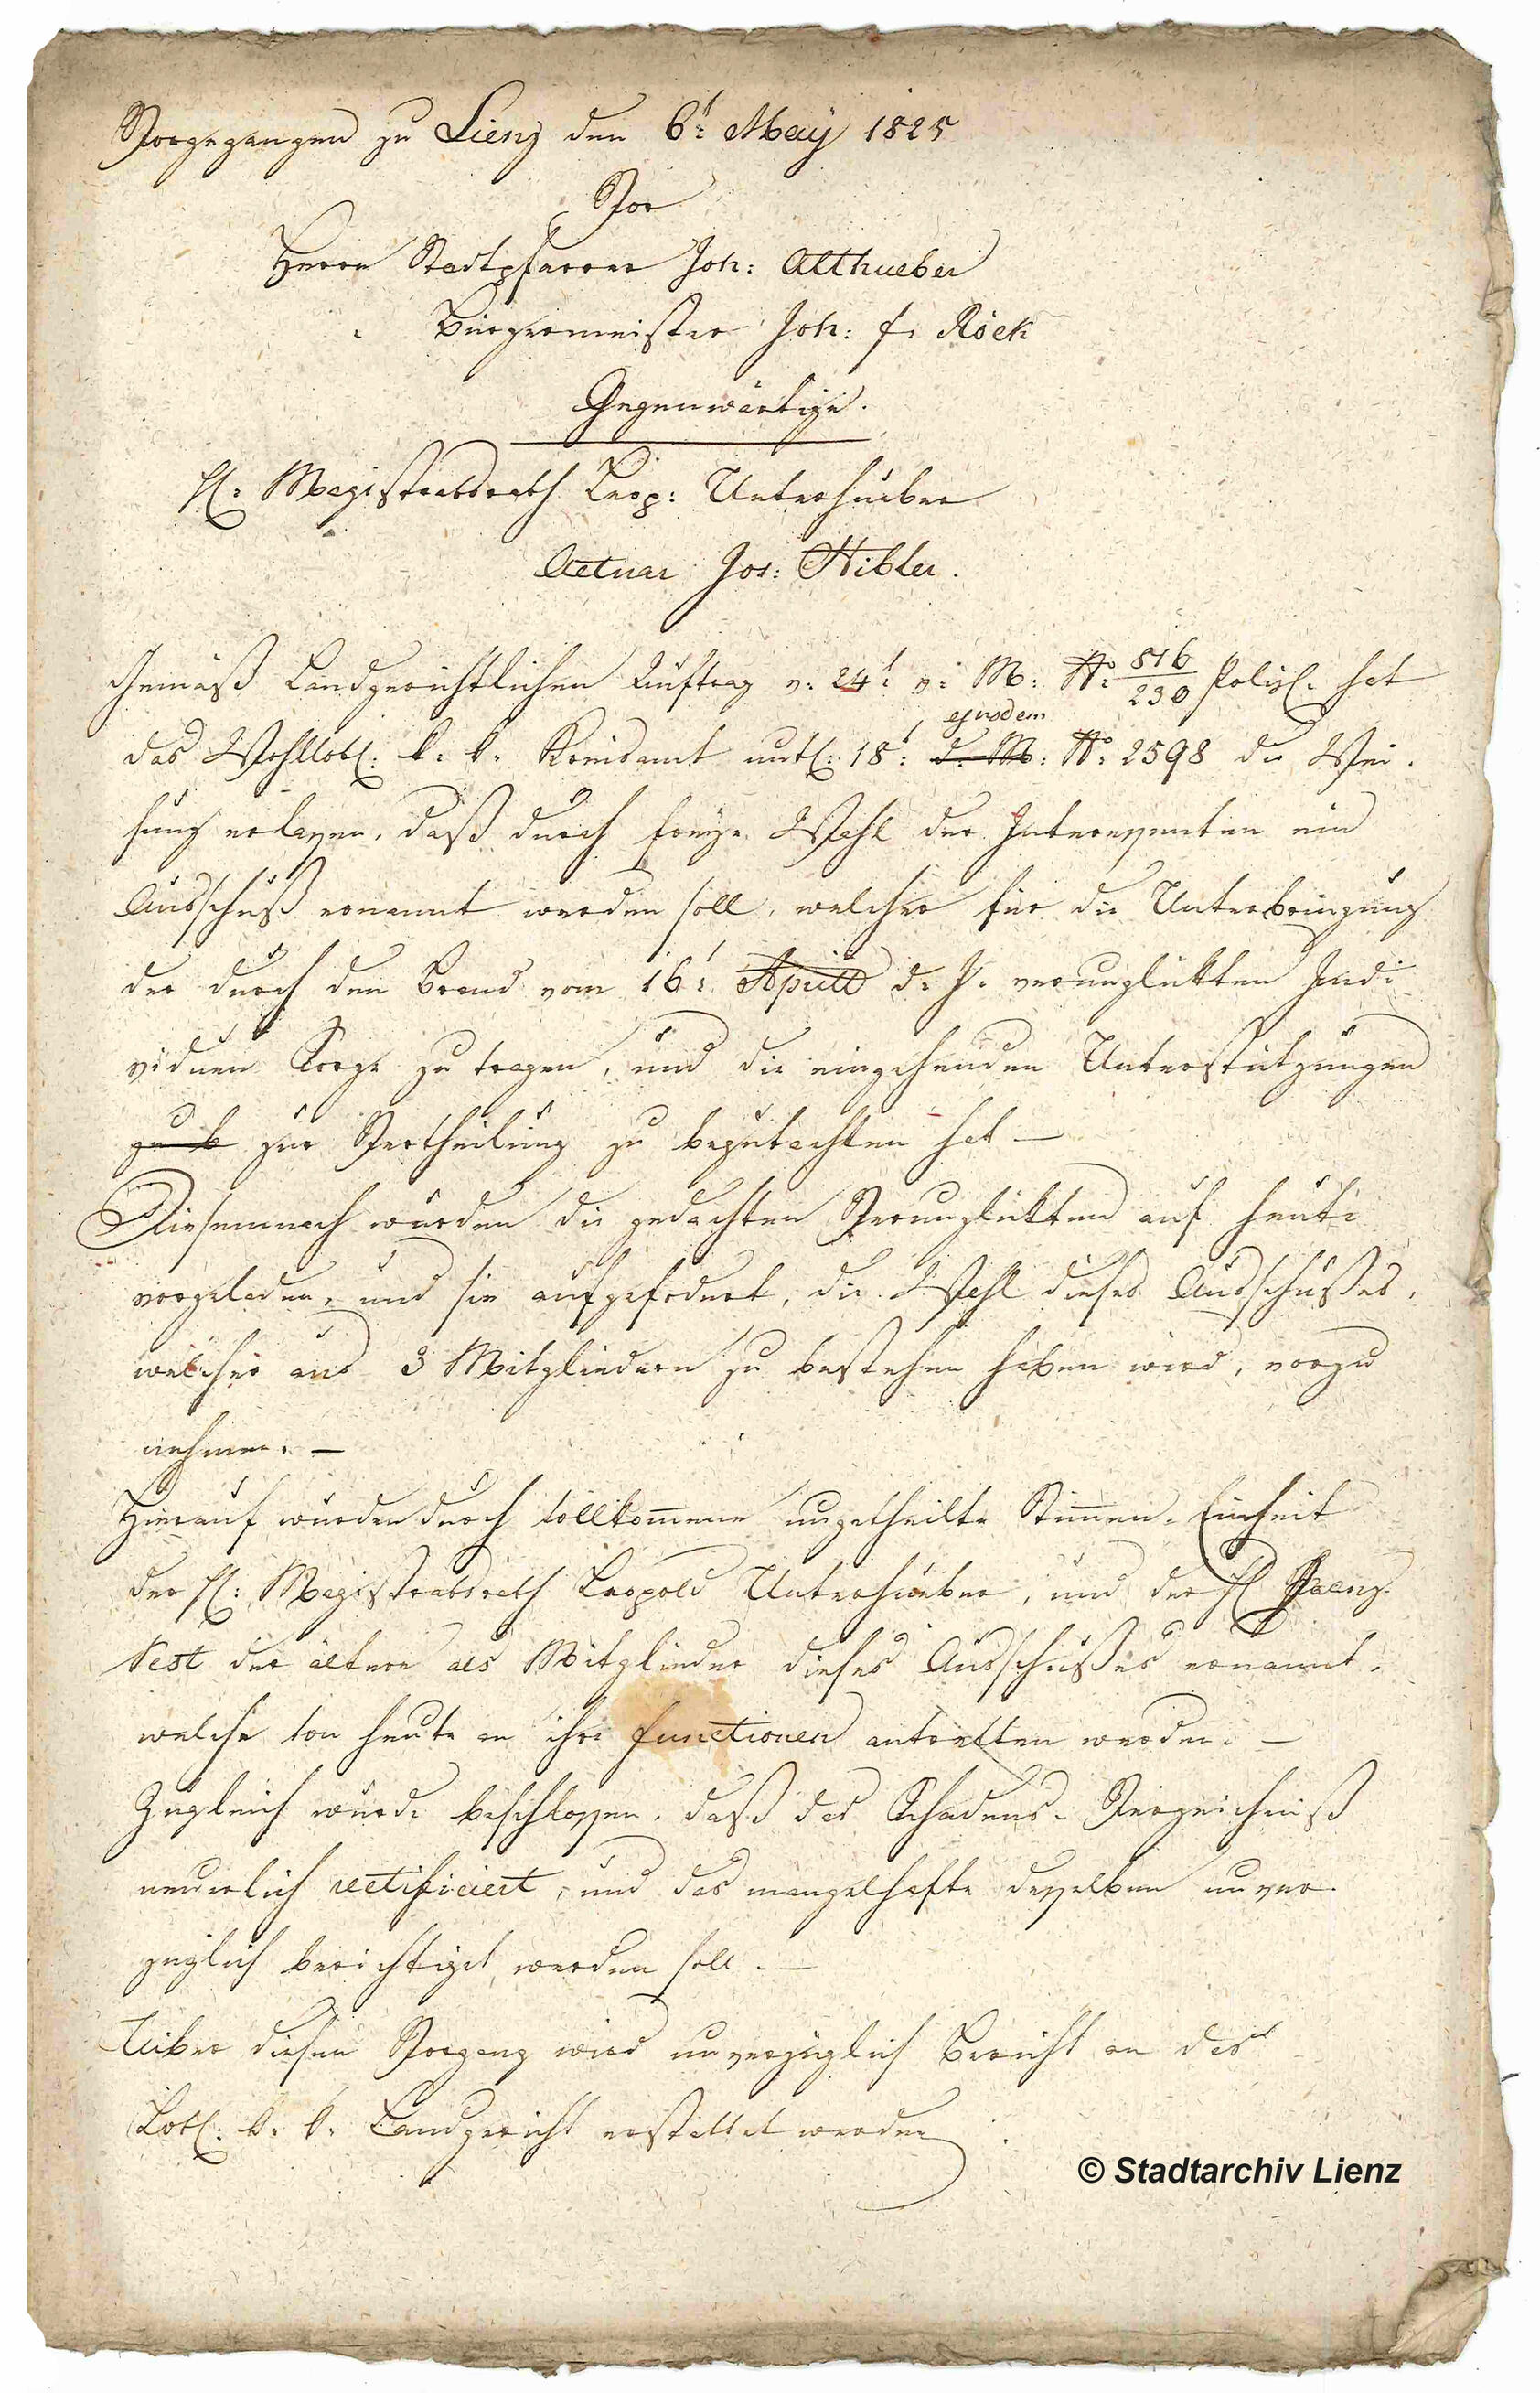 Vorgegangen zu Lienz den 6t: May 1825
Vor
Herrn Stadtpfarrer Joh: Althueber
" Bürgermeister Joh: f: Röck
Gegenwärtige.
H: Magistratsrath Leop: Unterhueber
Actuar Jos: Hibler.
Gemäß Landgerichtlichen Auftrag v: 24t: v: M: No: 516/230 Poliz: hat
das Wohllobl: k: k: Kreisamt unt: 18t: d: M: ejusdem No: 2598 die Wei-
sung erlassen, daß durch freye Wahl der Interessenten ein
Ausschuß ernannt werden soll, welcher für die Unterbringung
der durch den Brand vom 16t: Aprill d: J: verunglükten Indi-
viduen Sorge zu tragen, und die eingehenden Unterstützungen
zu b zur Vertheilung zu begutachten hat —
Diesemnach wurden die gedachten Verunglükten auf heute
vorgeladen, und sie aufgefodert, die Wahl dieses Ausschußes,
welcher aus 3 Mitgliedern zu bestehen haben wird, vorzu
nehmen. —
Hierauf wurden durch vollkommene ungetheilte Stimmen-Einheit
der H: Magistratsrath Leopold Unterhueber, und der H Franz
Vest der ältere als Mitglieder dieses Ausschußes ernannt,
welche von heute an ihre functionen antretten werden. —
Zugleich wurde beschlossen, daß das Schadens-Verzeichniß
neuerlich rectificiert, und das mangelhafte desselben unver-
züglich berichtiget werden soll. —
Uiber diesen Vorgang wird unverzüglich Bericht an das
Lobl: k: k: Landgericht erstattet werden
© Stadtarchiv Lienz